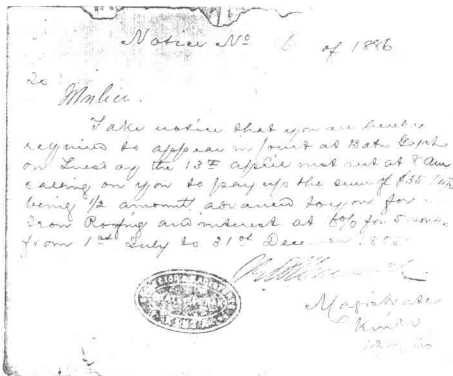 Notice No 6 of 1886
To
Take notice that you are hereby
required to appear in Court at
on Tuesday the 13th April instant at 8 am
calling on you to pay up the sum of $35
being 1/2 amount advanced to you for
Iron Roofing and interest at 6% for 5 months
from 1st July to 31st December
Magistrate